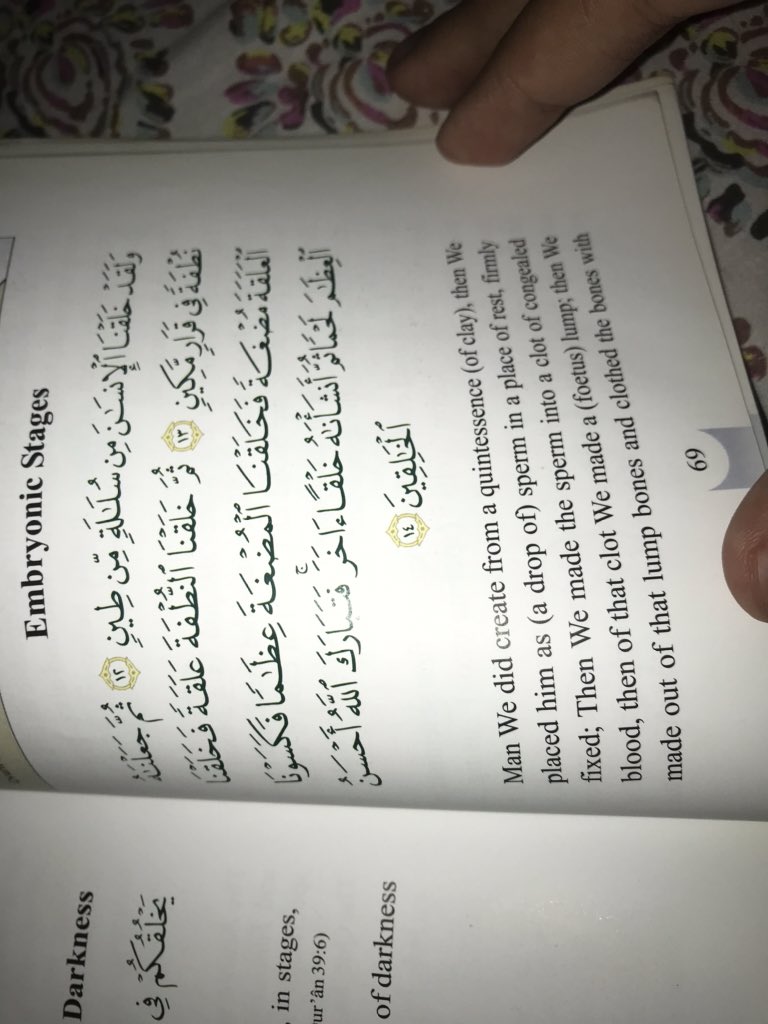 Darkness
يَخْلُقُكُمْ فِى
in stages,
ur'ân 39:6)
of darkness
Embryonic Stages
وَلَقَدْ خَلَقْنَا ٱلْإِنسَـٰنَ مِن سُلَـٰلَةٍ مِّن طِينٍ ١٢ ثُمَّ جَعَلْنَـٰهُ
نُطْفَةً فِى قَرَارٍ مَّكِينٍ ١٣ ثُمَّ خَلَقْنَا ٱلنُّطْفَةَ عَلَقَةً فَخَلَقْنَا
ٱلْعَلَقَةَ مُضْغَةً فَخَلَقْنَا ٱلْمُضْغَةَ عِظَـٰمًا فَكَسَوْنَا
ٱلْعِظَـٰمَ لَحْمًا ثُمَّ أَنشَأْنَـٰهُ خَلْقًا ءَاخَرَ ۚ فَتَبَارَكَ ٱللَّهُ أَحْسَنُ
ٱلْخَـٰلِقِينَ ١٤
Man We did create from a quintessence (of clay), then We
placed him as (a drop of) sperm in a place of rest, firmly
fixed; Then We made the sperm into a clot of congealed
blood, then of that clot We made a (foetus) lump; then We
made out of that lump bones and clothed the bones with
69